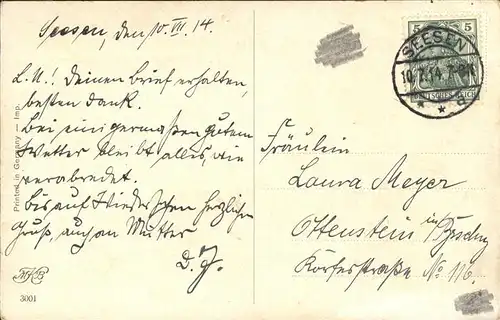 Seesen, den 10. VII. 14.
L. M.! Deinen Brief erhalten,
besten Dank.
Bei einigermaßen gutem
Wetter bleibt alles, wie
verabredet.
Bis auf Wiedersehen herzlichen
Gruß, auch an Mutter
D. J.
Printed in Germany — Imp.
3001
5
SEESEN
10.7.14. 7-8
DEUTSCHES REICH
Fräulein
Laura Meyer
Ottenstein
in
No 116.